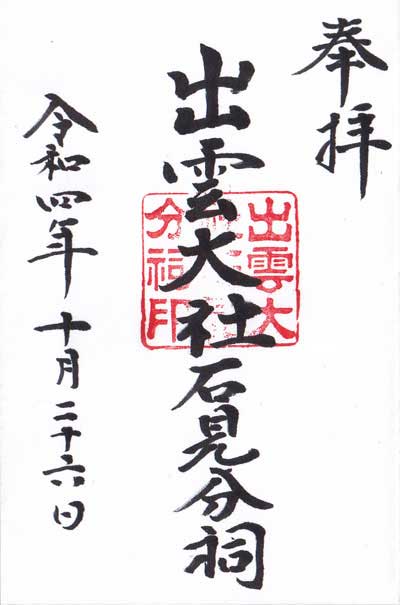 奉拝
出雲大社石見分祠
令和四年十月二十六日
出雲大
分祠印